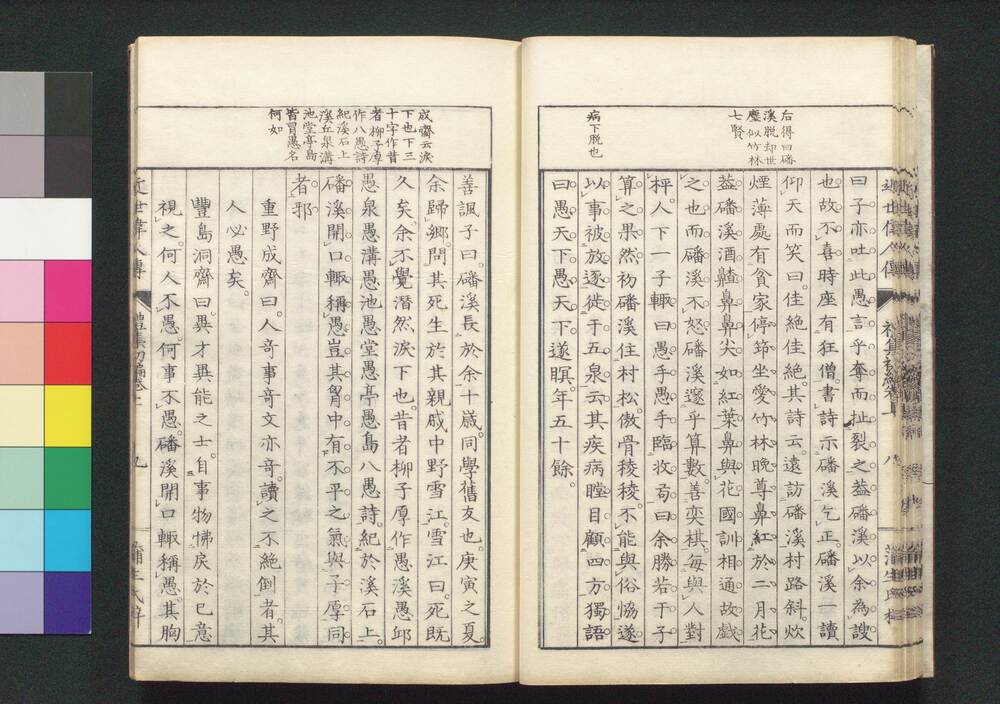 后得曰磻
溪脱却世
塵似竹林
七賢
病下脱也
近世偉人傳
八
曰子亦吐此愚言乎奪而扯裂之葢磻溪以余為謏
也故不喜時座有狂僧書詩示磻溪乞正磻溪一讀
仰天而笑曰佳絶佳絶其詩云遠訪磻溪村路斜炊
煙薄處有貧家停筇坐愛竹林晚尊鼻紅於二月花
葢磻溪酒齄鼻鼻尖如紅葉鼻與花國訓相通故戯
之也而磻溪不怒磻溪邃乎算數善奕棋每與人對
枰人下一子輙曰愚手愚手臨收局曰余勝若干子
算之果然初磻溪住村松傲骨稜稜不能與俗恊遂
以事被放逐徙于五泉云其疾病瞠目顧四方獨語
曰愚天下愚天下遂瞑年五十餘
成齋云淚
下也下三
十字作昔
者柳子厚
作八愚詩
紀溪石上
溪丘泉溝
池堂亭島
皆冒愚名
何如
善諷子曰磻溪長於余十歳同學舊友也庚寅之夏
余歸郷問其死生於其親戚中野雪江雪江曰死既
久矣余不覺潛然淚下也昔者柳子厚作愚溪愚邱
愚泉愚溝愚池愚堂愚亭愚島八愚詩紀於溪石上
磻溪開口輙稱愚豈其胷中有不平之氣與子厚同
者邪
重野成齋曰人竒事竒文亦竒讀之不絶倒者其
人必愚矣
豐島洞齋曰異才異能之士自事物怫戾於已意
視之何人不愚何事不愚磻溪開口輙稱愚其胸
近世偉人傳
禮集初編卷上
九
蒲生氏梓